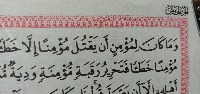 وَمَا كَانَ لِمُؤْمِنٍ أَن يَقْتُلَ مُؤْمِنًا إِلَّا خَطَـًٔا
مُؤْمِنًا خَطَـًٔا فَتَحْرِيرُ رَقَبَةٍ مُّؤْمِنَةٍ وَدِيَةٌ مُّسَ
أَهْلِهِ إِلَّا أَن